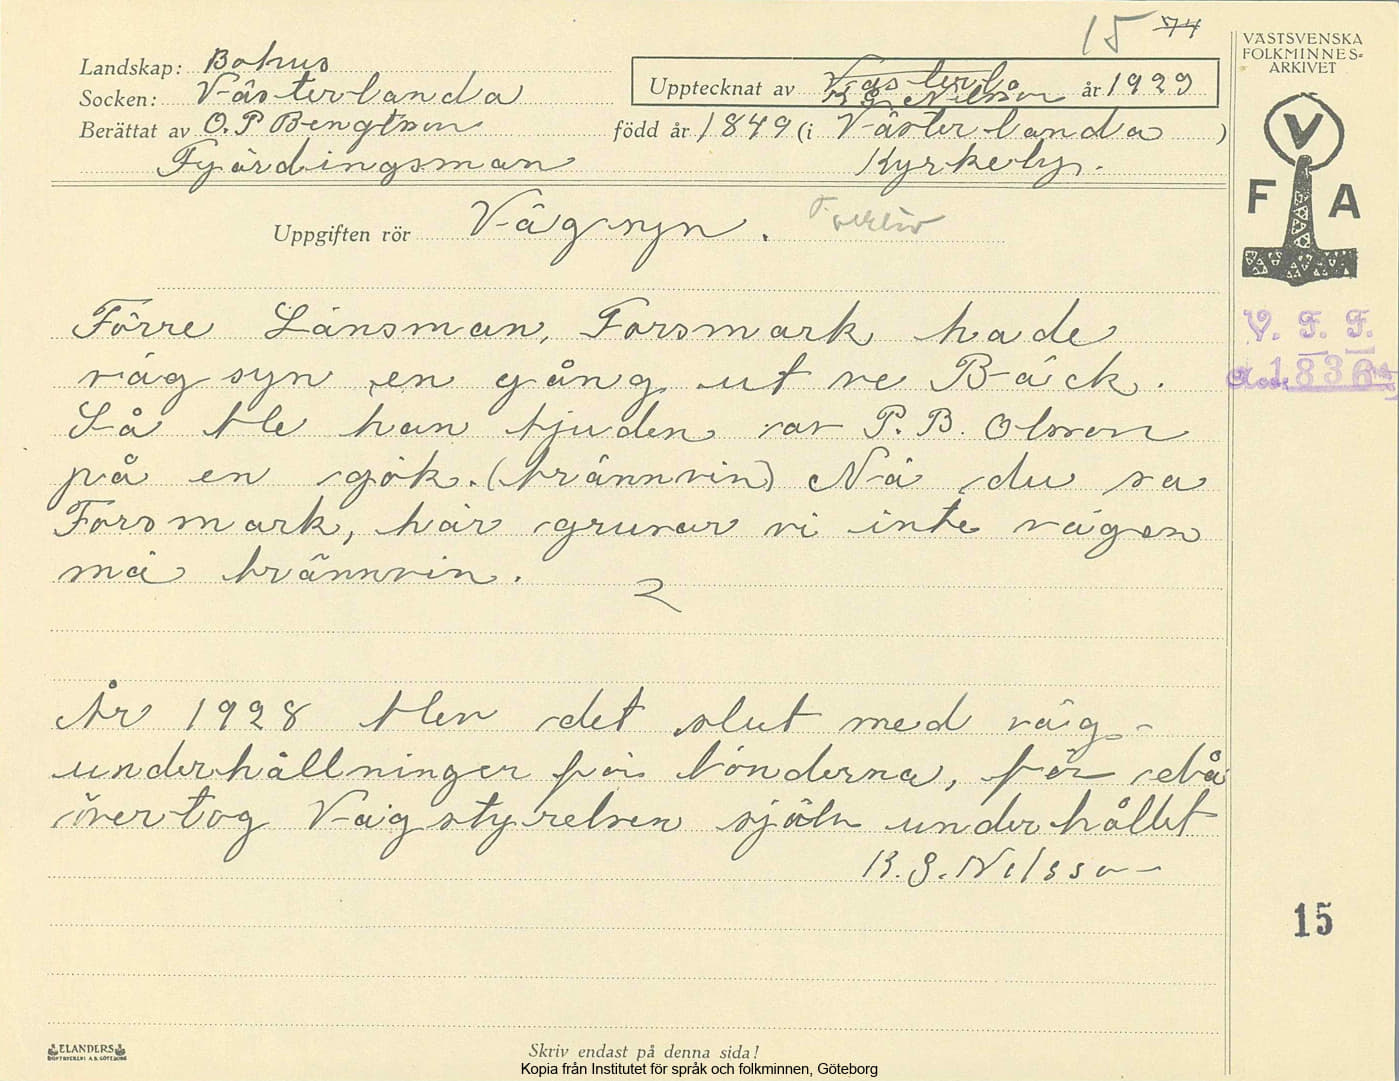 15 74
VÄSTSVENSKA
FOLKMINNES-
ARKIVET
Landskap: Bohus
Socken: Västerlanda
Upptecknat av K. G. Nilsson år 1929
Berättat av O. P Bengtson född år 1849 (i Västerlanda )
Fjärdingsman Kyrkeby.
V
F A
Uppgiften rör Vägsyn.
Förre Länsman, Forsmark hade
vägsyn en gång ut ve Bäck.
Så ble han bjuden av P. B. Olsson
på en gök. (brännvin) Nä du sa
Forsmark, här gruvar vi inte vägen
mä brännvin.
V. F. F.
1836
År 1928 blev det slut med väg-
underhållningen för bönderna, för då
övertog Vägstyrelsen själv underhållet
K. G. Nilsson
15
ELANDERS
Skriv endast på denna sida!
Kopia från Institutet för språk och folkminnen, Göteborg